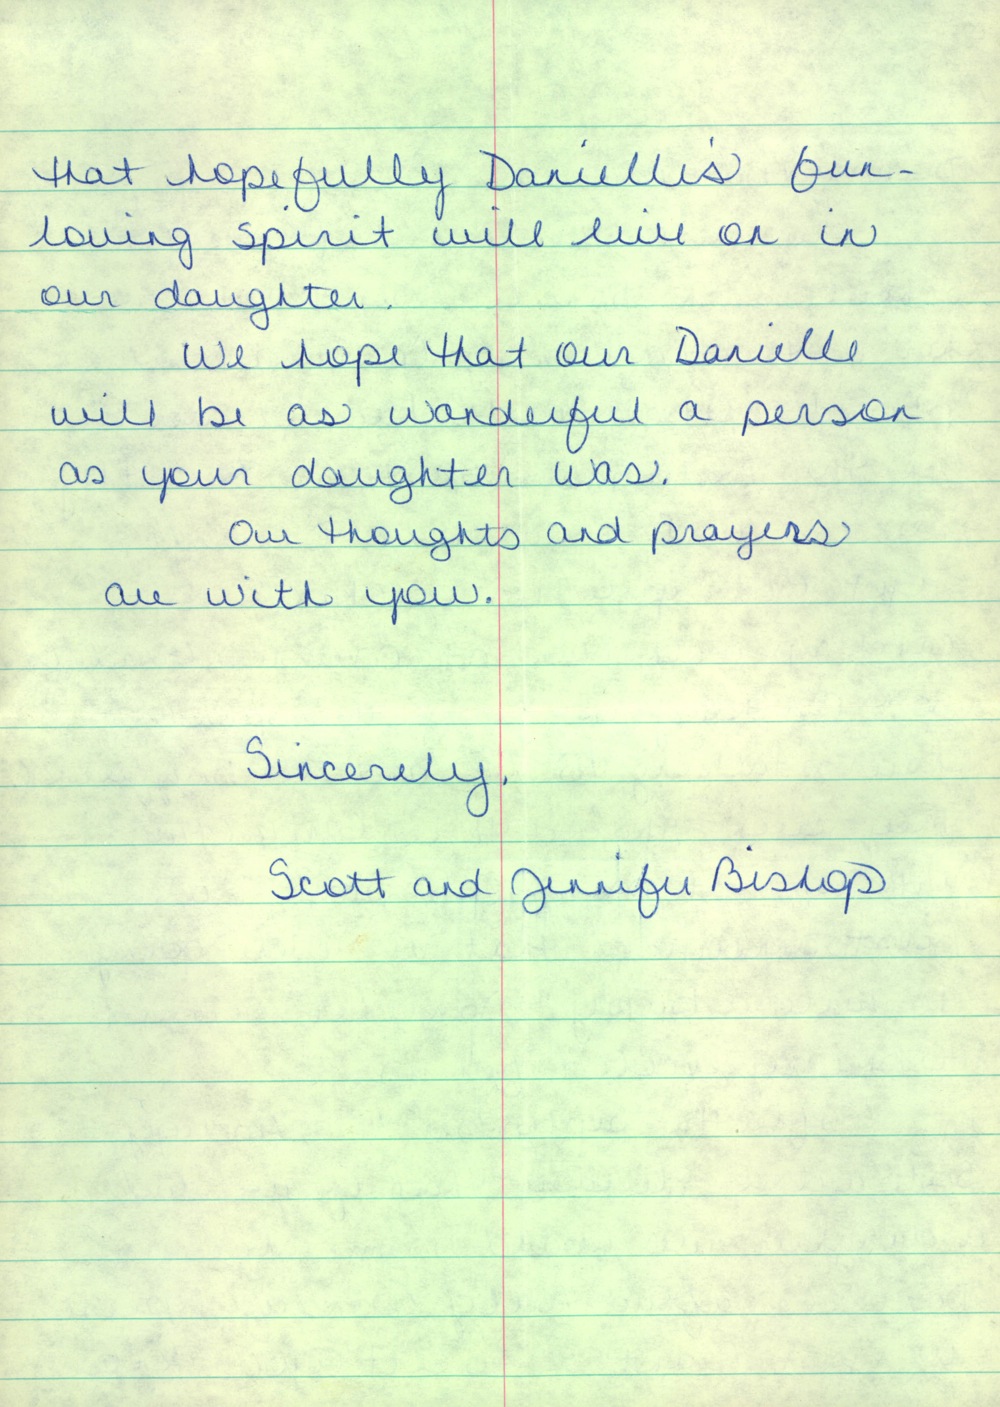 that hopefully Danielle's fun-
loving spirit will live on in
our daughter.
We hope that our Danielle
will be as wonderful a person
as your daughter was.
Our thoughts and prayers
are with you.
Sincerely,
Scott and Jennifer Bishop